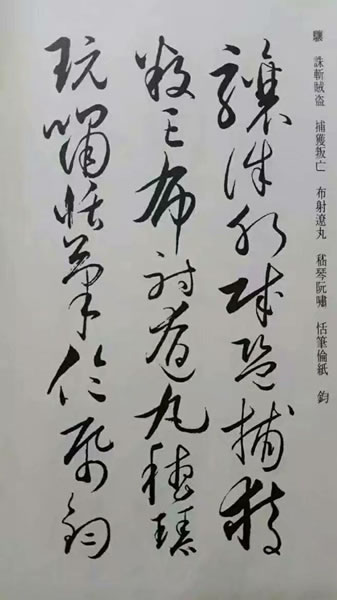 驤　誅斬賊盜　捕獲叛亡　布射遼丸　嵇琴阮嘯　恬筆倫紙　鈞
驤誅斬賊盜捕獲
叛亡布射遼丸嵇琴
阮嘯恬筆倫紙鈞